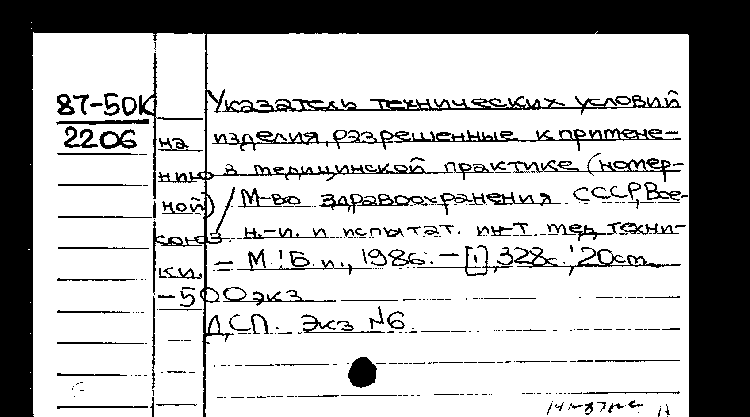 87-50К
2206
Указатель технических условий
на изделия, разрешенные к примене-
нию в медицинской практике (номер-
ной) / М-во здравоохранения СССР, Все-
союз н.-и. и испытат. ин-т мед. техни-
ки. – М.: Б.и., 1986. – [1], 328с.; 20cm
– 500 экз
ДСП. Экз №6